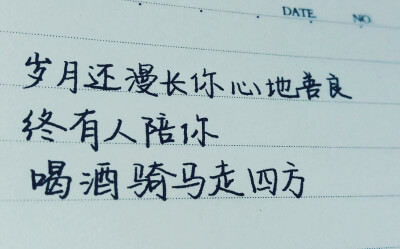 DATE NO
岁月还漫长你心地善良
终有人陪你
喝酒骑马走四方